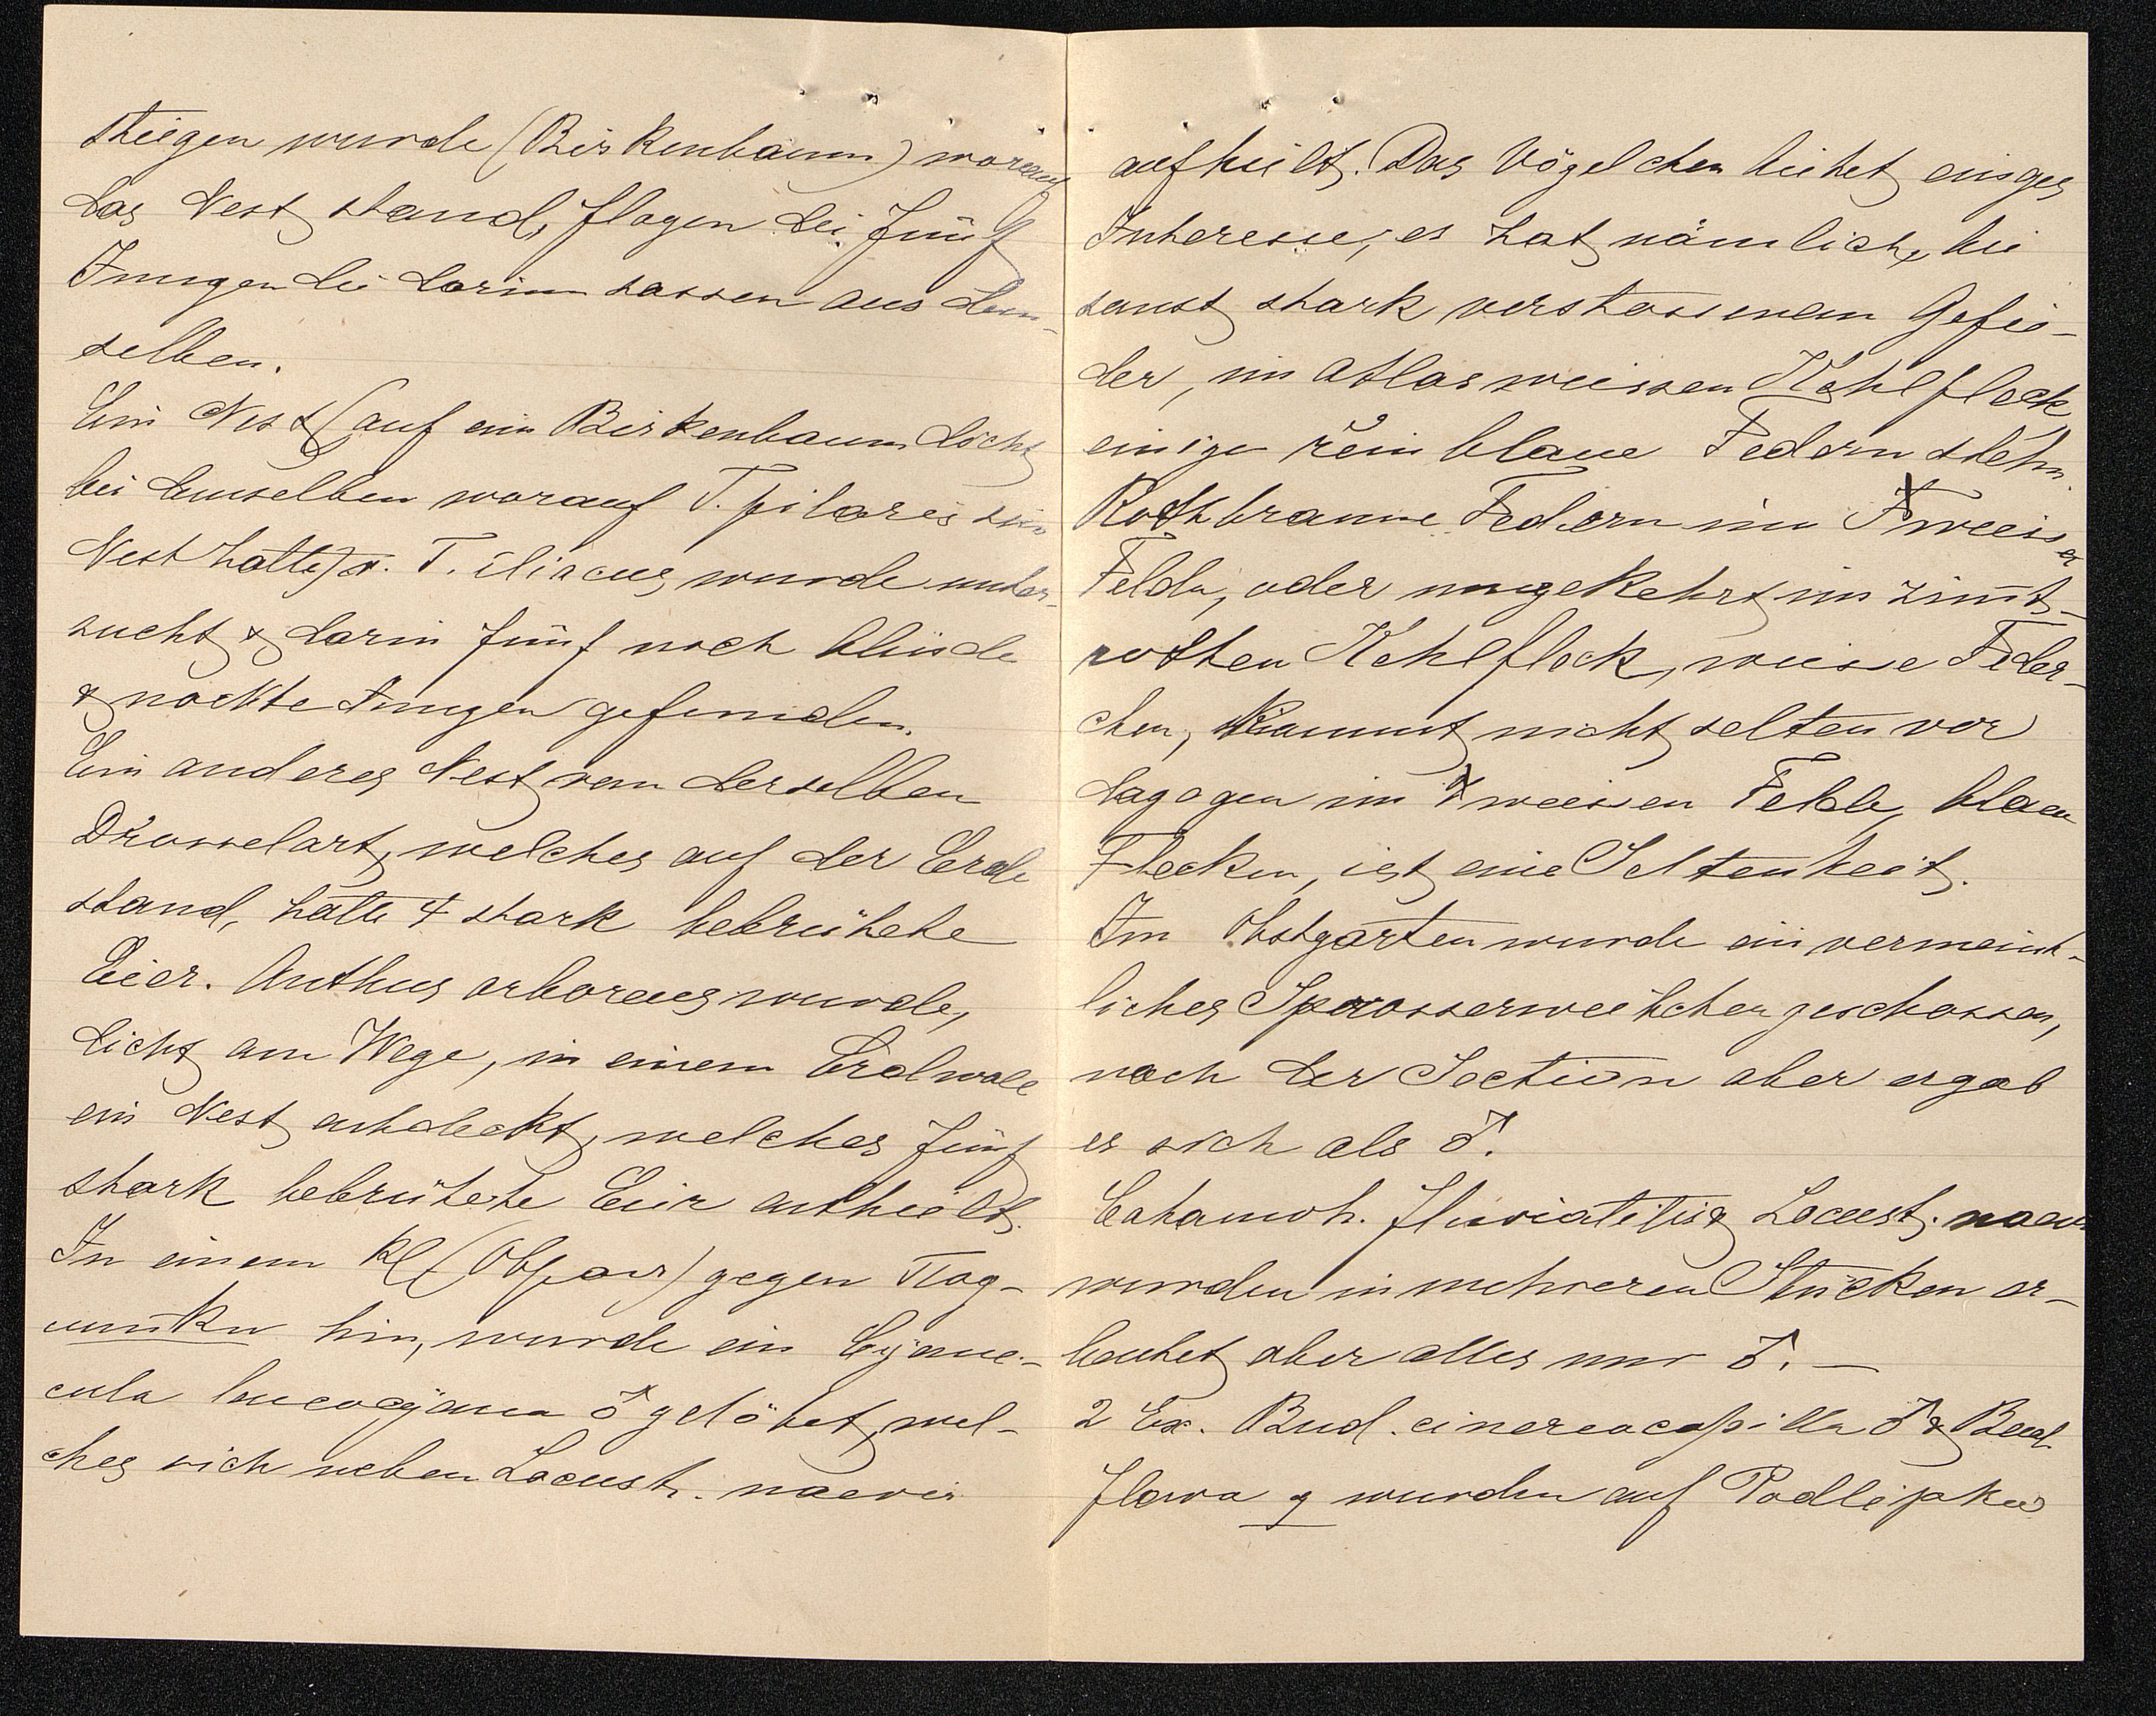 stiegen wurde (Birkenbaum) worauf
das Nest stand, flogen die fünf
Jungen die darinn sassen aus dem-
selben.
Ein Nest (auf ein Birkenbaum dicht
bei demselben worauf T. pilaris sein
Nest hatte) v. T. iliacus, wurde unter-
sucht & darin fünf noch blinde
& nackte Jungen gefunden.
Ein anderes Nest von derselben
Drosselart, welches auf der Erde
stand, hatte 4 stark bebrütete
Eier. Anthus arboreus wurde,
dicht am Wege, in einem Erdwale
ein Nest entdeckt, welches fünf
stark bebrütete Eier enthielt.
In einem kl (Obpar) gegen
hin, wurde ein Cyane-
cula leucocyana ♂ getötet, wel-
ches sich neben Locust. naevia
aufhielt. Das Vögelchen bietet einges
Interesse, es hat nämlich, bei
sonst stark verstossenem Gefie-
der, im atlasweissen Kehlfleck
einige rein blaue Federn stehn.
Rothbraune Federn im weisser
Felde, oder umgekehrt im zimt-
rothen Kehlfleck, weisse Feder-
chen, kommt nicht selten vor
dagegen im weissen Felde, blaue
Flecken, ist eine Seltenheit.
Im Obstgarten wurde ein vermeint-
liches Sprosserweibchen geschossen,
nach der Section aber ergab
es sich als ♂.
Calamoh. fluviatilis & Locust. naevia
wurden in mehreren Stücken er-
beutet aber alles nur ♂. —
2 Ex. Bud. cinereocapilla ♂ & Bud.
flava wurden auf Podlipku